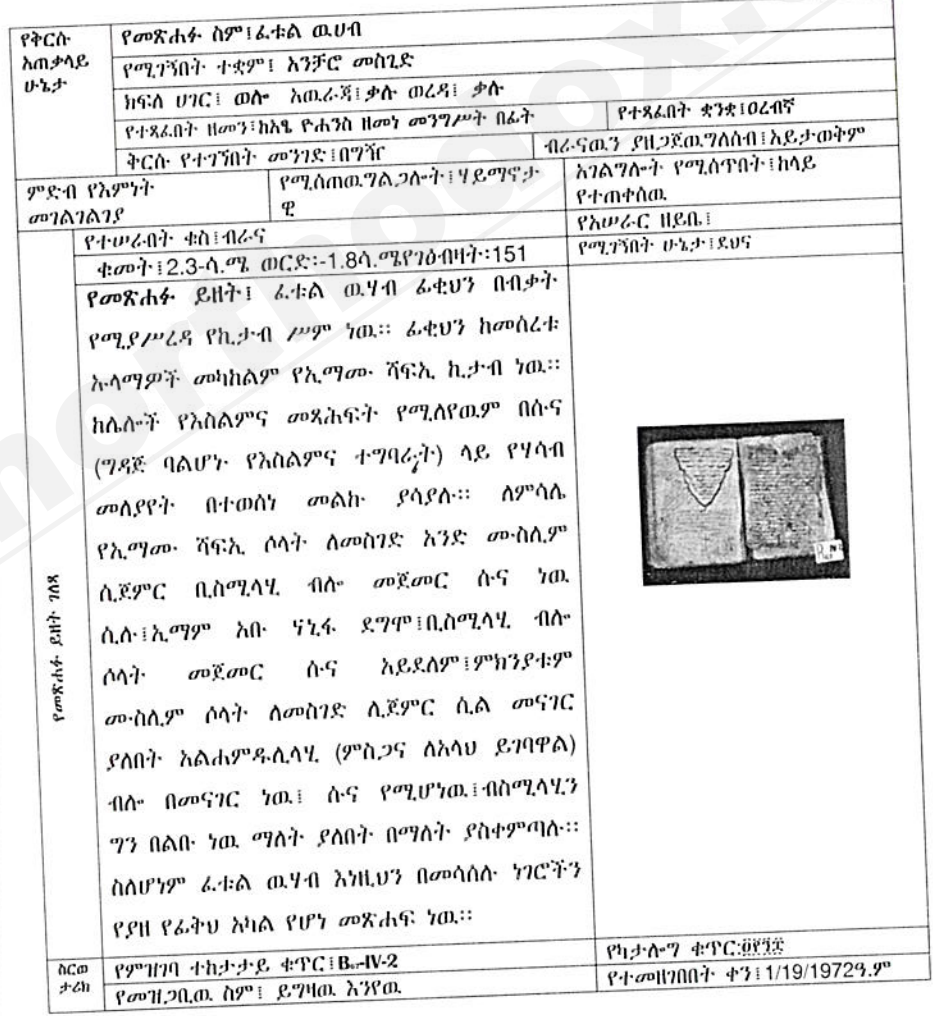 የቅርሱ አጠቃላይ ሁኔታ
የመጽሐፉ ስም፤ፈቱል ዉሀብ
የሚገኝበት ተቋም፤ አንቻሮ መስጊድ
ክፍለ ሀገር፤ ወሎ አዉራጃ፤ቃሉ ወረዳ፤ ቃሉ
የተጻፈበት ዘመን፤ከአፄ ዮሐንስ ዘመነ መንግሥት በፊት
የተጻፈበት ቋንቋ፤ዐረብኛ
ቅርሱ የተገኘበት መንገድ፤በግዥ
ብራናዉን ያዘጋጀዉ ግለሰብ፤አይታወቅም
ምድብ የእምነት መገልገልገያ
የሚሰጠዉ ግልጋሎት፤ሃይማኖታዊ
አገልግሎት የሚሰጥበት፤ከላይ የተጠቀሰዉ
የመጽሐፉ ይዘት ገለጻ
የተሠራበት ቁስ፤ብራና
የአሠራር ዘይቤ፤
ቁመት፤2.3-ሳ.ሜ ወርድ፡-1.8ሳ.ሜየገፅብዛት፡151
የሚገኝበት ሁኔታ፤ደህና
የመጽሐፉ ይዘት፤ ፈቱል ዉሃብ ፊቂህን በብቃት
የሚያሥረዳ የኪታብ ሥም ነዉ። ፊቂህን ከመሰረቱ
ኡላማዎች መካከልም የኢማሙ ሻፍኢ ኪታብ ነዉ።
ከሌሎች የእስልምና መጻሕፍት የሚለየዉም በሱና
(ግዳጅ ባልሆኑ የእስልምና ተግባራት) ላይ የሃሳብ
መለያየት በተወሰነ መልኩ ያሳያሉ። ለምሳሌ
የኢማሙ ሻፍኢ ሶላት ለመስገድ አንድ ሙስሊም
ሲጀምር ቢስሚላሂ ብሎ መጀመር ሱና ነዉ
ሲሉ፤ኢማም አቡ ሃኒፋ ደግሞ፤ቢስሚላሂ ብሎ
ሶላት መጀመር ሱና አይደለም፤ምክንያቱም
ሙስሊም ሶላት ለመስገድ ሊጀምር ሲል መናገር
ያለበት አልሐምዱሊላሂ (ምስጋና ለአላህ ይገባዋል)
ብሎ በመናገር ነዉ፤ ሱና የሚሆነዉ፤ብስሚላሂን
ግን በልቡ ነዉ ማለት ያለበት በማለት ያስቀምጣሉ።
ስለሆነም ፈቱል ዉሃብ እነዚህን በመሳሰሉ ነገሮችን
የያዘ የፊቅህ አካል የሆነ መጽሐፍ ነዉ።
ስርወ ታሪክ
የምዝገባ ተከታታይ ቁጥር፤B-IV-2
የካታሎግ ቁጥር:
የመዝጋቢዉ ስም፤ ይግዛዉ እንየዉ
የተመዘገበበት ቀን፤1/19/1972ዓ.ም